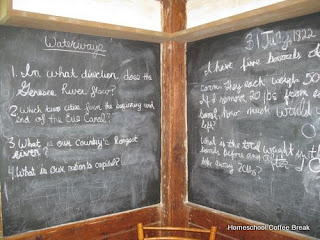 Waterways
1. In what direction does the
Genesee River flow?
2. Which two cities form the beginning and
end of the Erie Canal?
3 What is our country's longest
River?
4. What is our nation's capital?
31 July, 1822
I have five barrels of
corn. They each weigh 50
If I remove 20 lbs from
barrel, how much would
left?
What is the total weight in the
barrels before and after
take away 20 lbs?
Homeschool Coffee Break